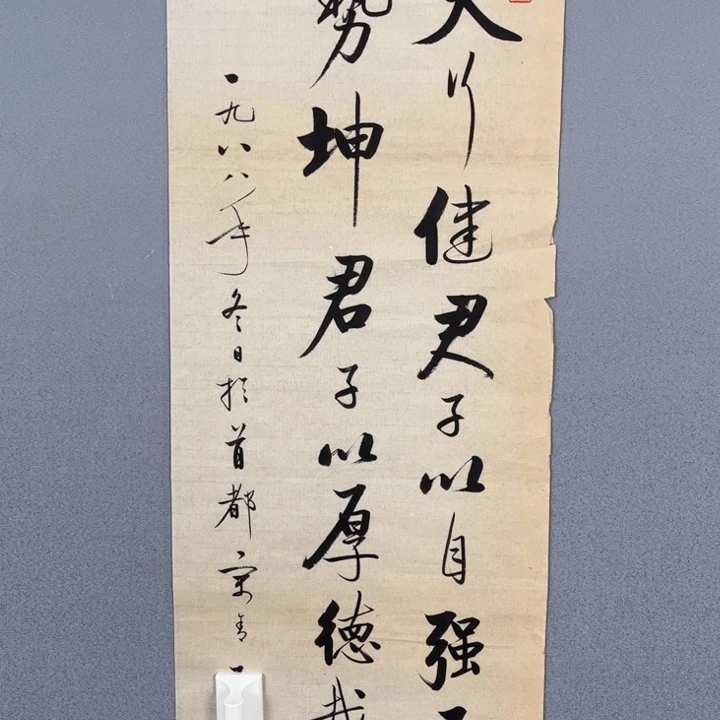 天行健君子以自强
勢坤君子以厚德載
一九八八年冬日於首都